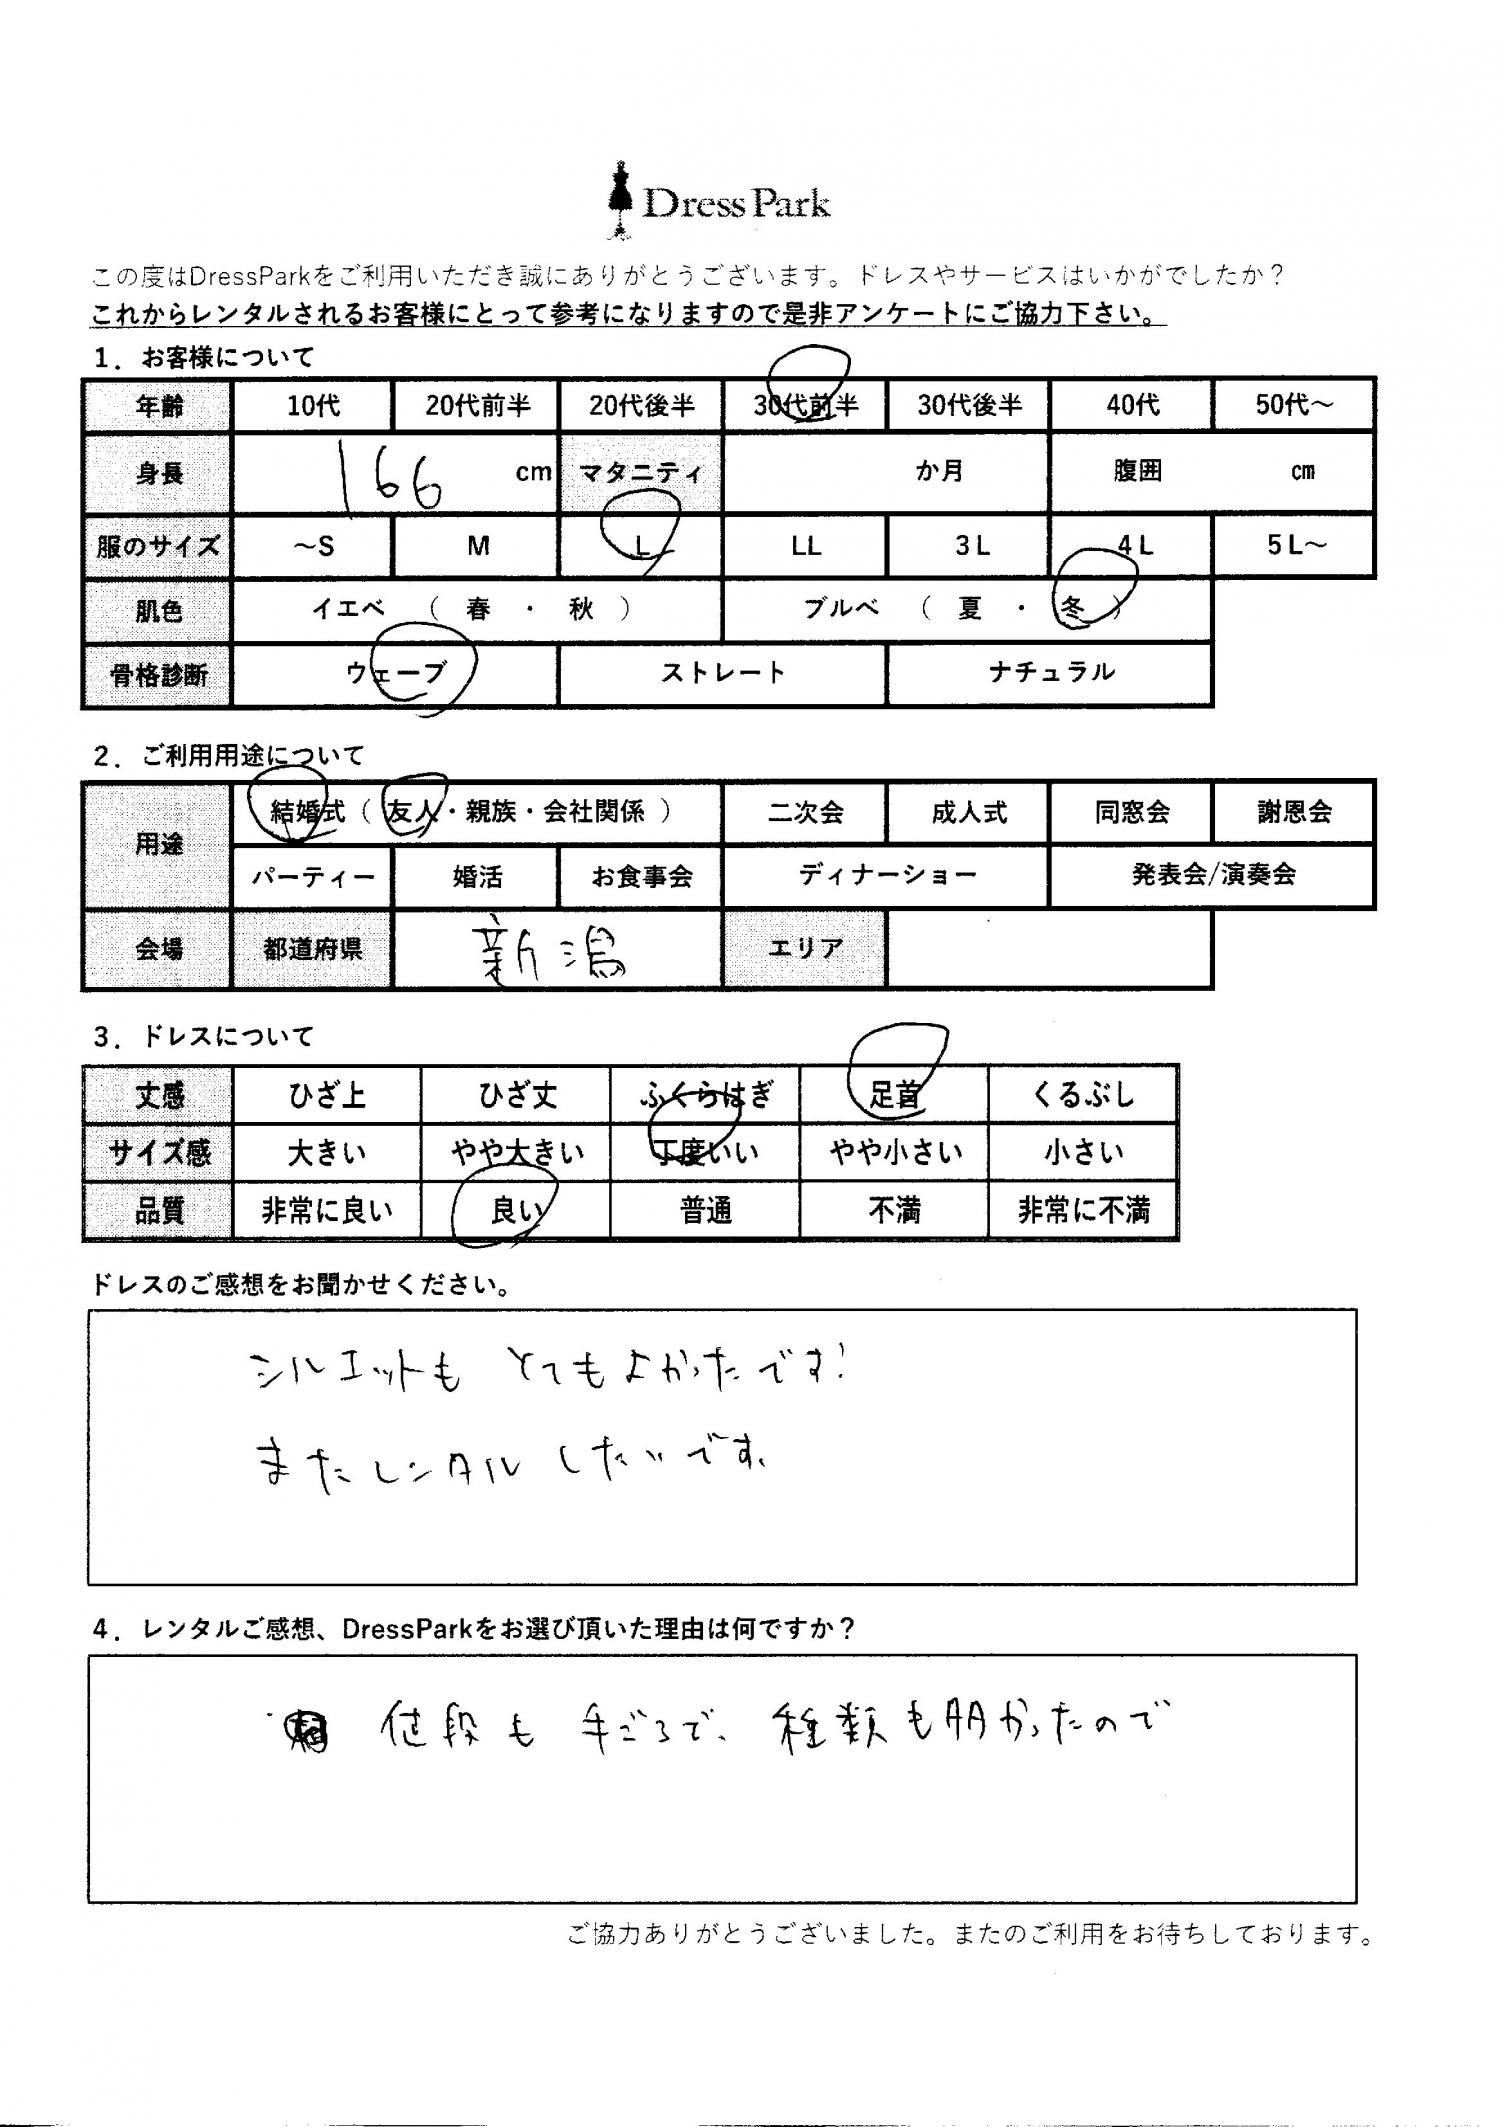 Dress Park
この度はDressParkをご利用いただき誠にありがとうございます。ドレスやサービスはいかがでしたか？
これからレンタルされるお客様にとって参考になりますので是非アンケートにご協力下さい。
1．お客様について
年齢 10代 20代前半 20代後半 30代前半 30代後半 40代 50代～
身長 166 cm マタニティ か月 腹囲 cm
服のサイズ ～S M L LL 3L 4L 5L～
肌色 イエベ （ 春 ・ 秋 ） ブルベ （ 夏 ・ 冬 ）
骨格診断 ウェーブ ストレート ナチュラル
2．ご利用用途について
用途 結婚式（ 友人・親族・会社関係 ） 二次会 成人式 同窓会 謝恩会
パーティー 婚活 お食事会 ディナーショー 発表会/演奏会
会場 都道府県 新潟 エリア
3．ドレスについて
丈感 ひざ上 ひざ丈 ふくらはぎ 足首 くるぶし
サイズ感 大きい やや大きい 丁度いい やや小さい 小さい
品質 非常に良い 良い 普通 不満 非常に不満
ドレスのご感想をお聞かせください。
シルエットも とてもよかったです!
またレンタルしたいです。
4．レンタルご感想、DressParkをお選び頂いた理由は何ですか？
値段も 手ごろで、種類も かったので
ご協力ありがとうございました。またのご利用をお待ちしております。